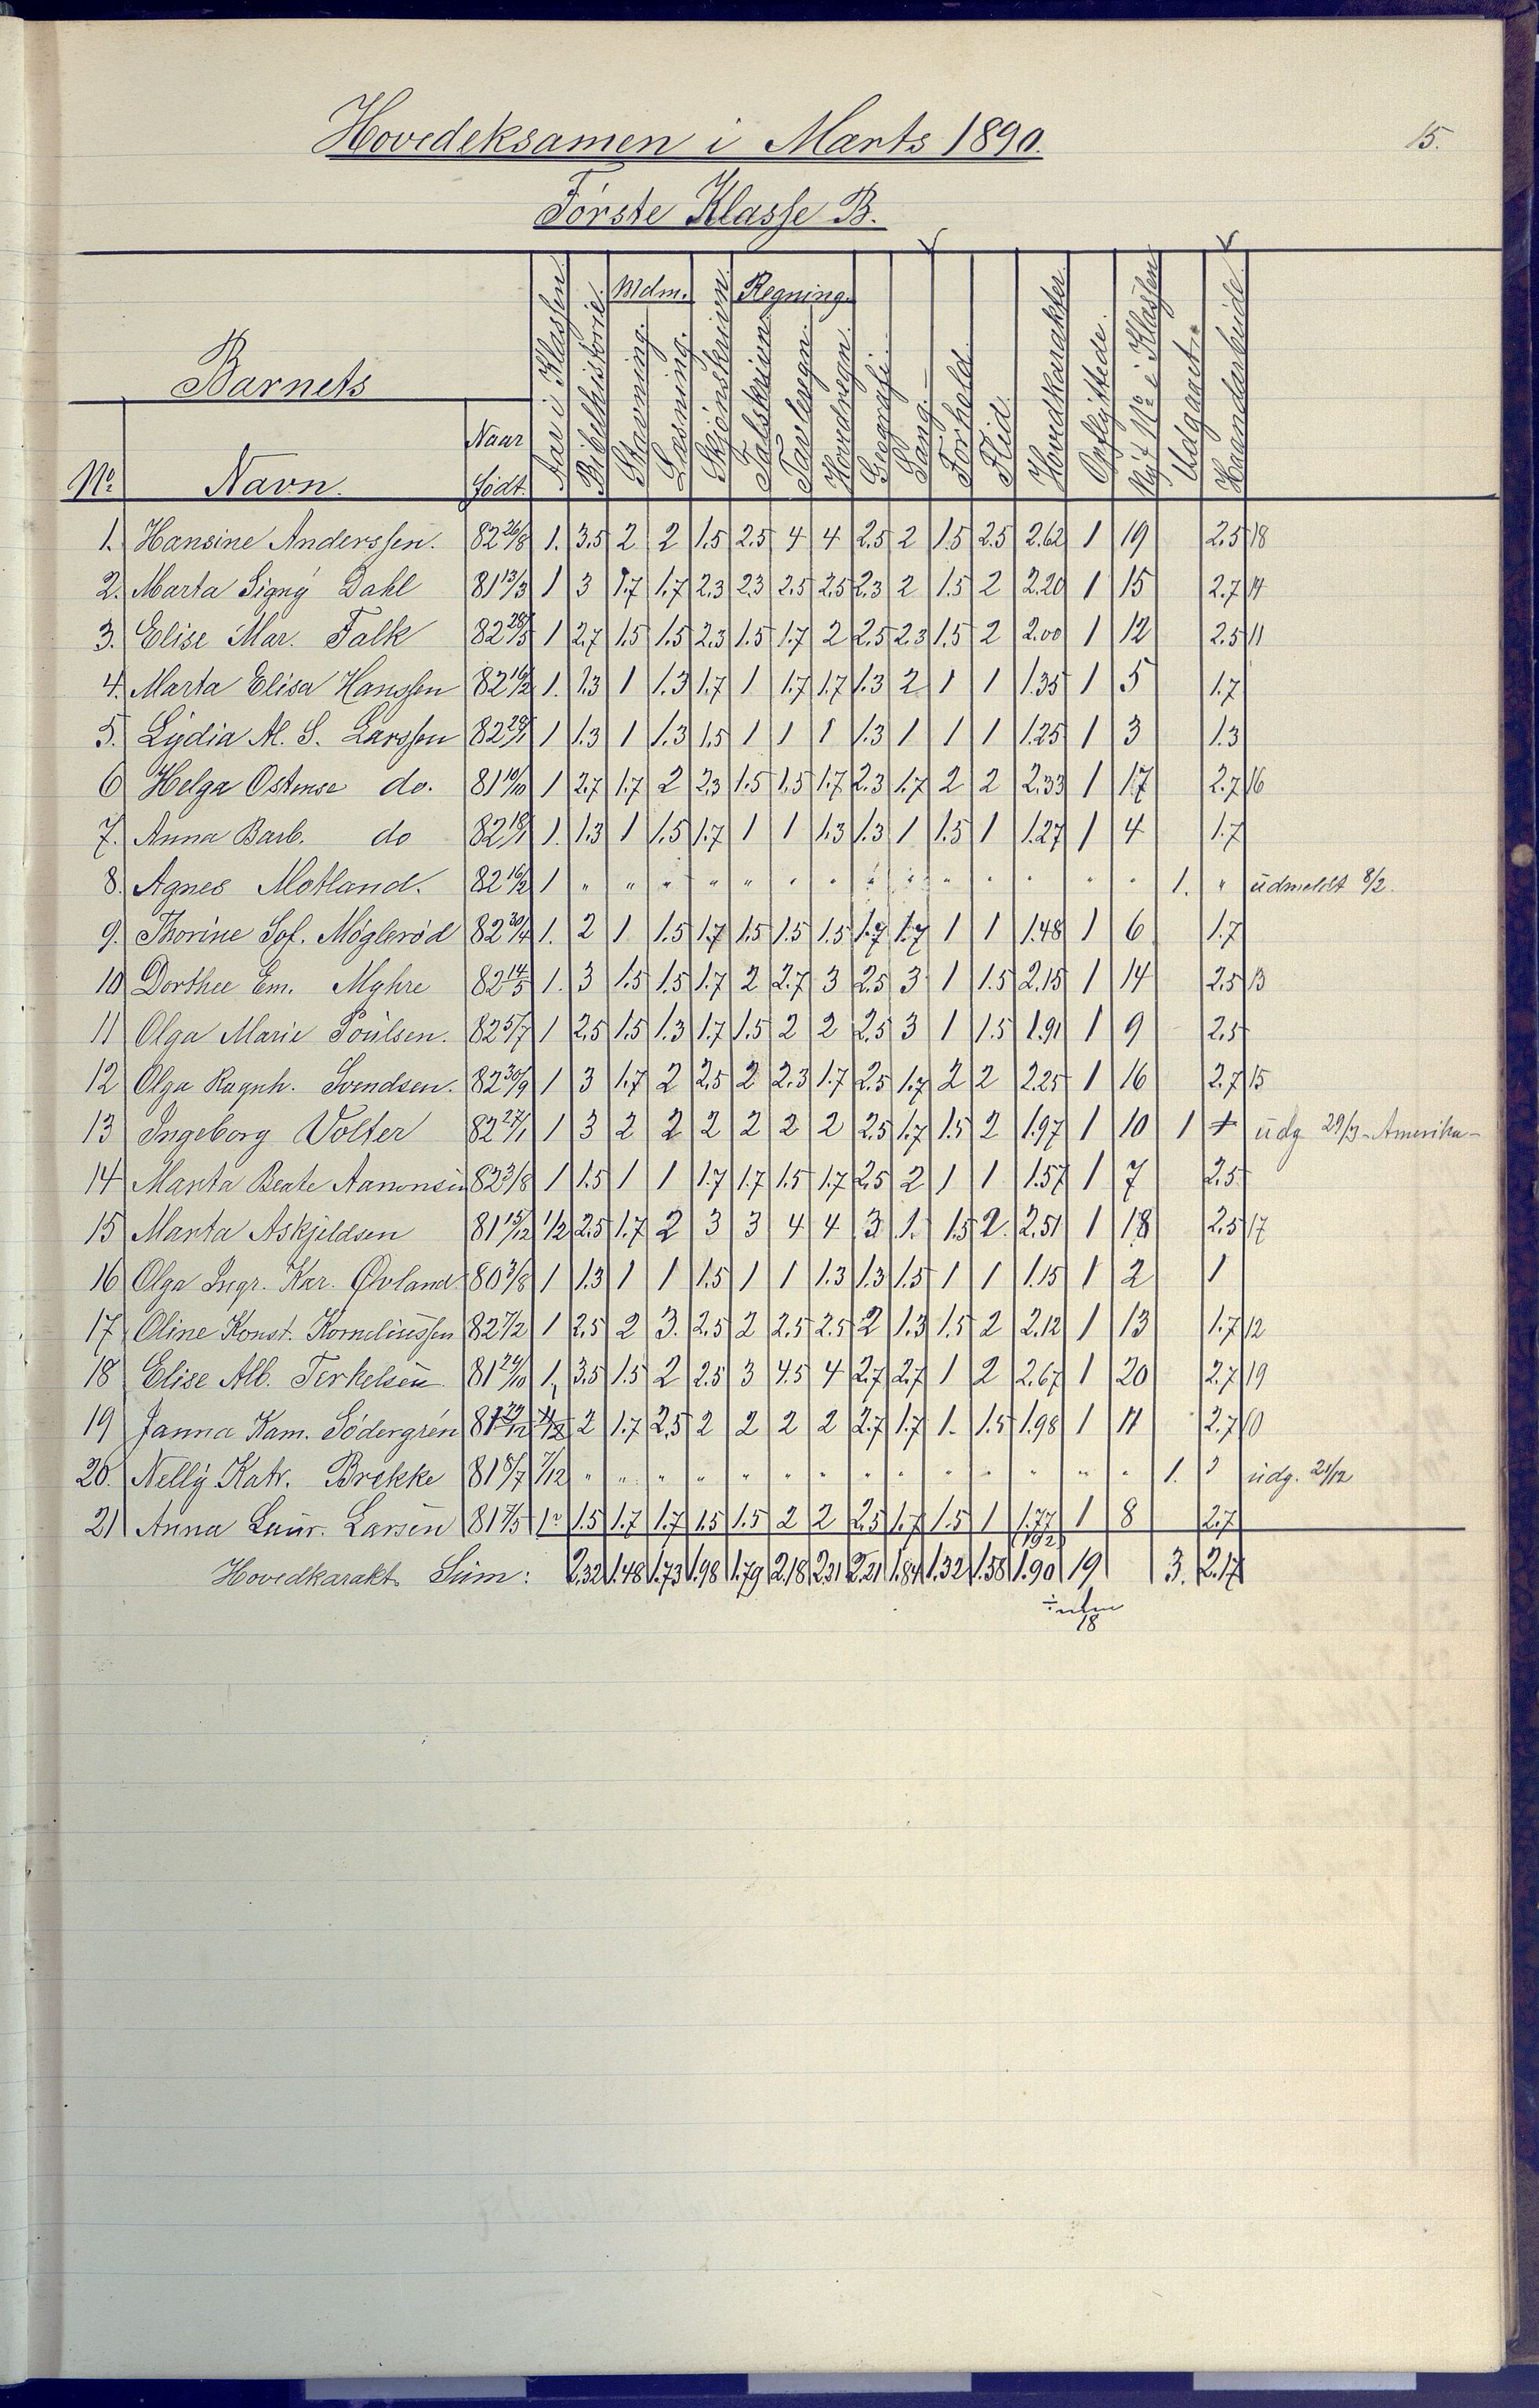 Hovedeksamen i Marts 1890.
15.
Første Klasse B.
Barnets
Mdm. Regning.
Aar i Klassen. Bibelhistorie. Stavning. Læsning. Skjönskrivn. Talskrivn. Tavleregn. Hovedregn. Geografi. Sang. Forhold. Flid. Hovedkarakter. Opflyttede. Nyt No i Klassen Udgaaet. Haandarbeide.
No Navn. Naar födt.
1. Hansine Anderssen. 82 26/8 1. 3.5 2 2 1.5 2.5 4 4 2.5 2 1.5 2.5 2.62 1 19 2.5 18
2. Marta Signy Dahl 81 13/3 1 3 1.7 1.7 2.3 2.3 2.5 2.5 2.3 2 1.5 2 2.20 1 15 2.7 14
3. Elise Mar. Falk 82 28/5 1 2.7 1.5 1.5 2.3 1.5 1.7 2 2.5 2.3 1.5 2 2.00 1 12 2.5 11
4. Marta Elisa Hanssen 82 16/2 1. 1.3 1 1.3 1.7 1 1.7 1.7 1.3 2 1 1 1.35 1 5 1.7
5. Lydia M. S. Larssen 82 29/1 1 1.3 1 1.3 1.5 1 1 1 1.3 1 1 1 1.25 1 3 1.3
6 Helga Ostense do. 81 10/10 1 2.7 1.7 2 2.3 1.5 1.5 1.7 2.3 1.7 2 2 2.33 1 17 2.7 16
7. Anna Barb. do 82 18/1 1. 1.3 1 1.5 1.7 1 1 1.3 1.3 1 1.5 1 1.27 1 4 1.7
8. Agnes Motland. 82 16/2 1 " " " " " " " " " " " " " " 1. " udmeldt 8/2.
9. Thorine Sof. Möglerød 82 30/4 1. 2 1 1.5 1.7 1.5 1.5 1.5 1.7 1.7 1 1 1.48 1 6 1.7
10 Dorthee Em. Myhre 82 14/5 1. 3 1.5 1.5 1.7 2 2.7 3 2.5 3 1 1.5 2.15 1 14 2.5 13
11 Olga Marie Poulsen. 82 5/7 1 2.5 1.5 1.3 1.7 1.5 2 2 2.5 3 1 1.5 1.91 1 9 2.5
12 Olga Ragnh. Svendsen. 82 30/9 1 3 1.7 2 2.5 2 2.3 1.7 2.5 1.7 2 2 2.25 1 16 2.7 15
13 Ingeborg Volter 82 27/1 1 3 2 2 2 2 2 2 2.5 1.7 1.5 2 1.97 1 10 1 + udg 29/3 - Amerika -
14 Marta Beate Aanonsen 82 3/8 1 1.5 1 1 1.7 1.7 1.5 1.7 2.5 2 1 1 1.57 1 7 2.5
15 Marta Askjeldsen 81 15/12 1/2 2.5 1.7 2 3 3 4 4 3 1. 1.5 2. 2.51 1 18 2.5 17
16 Olga Ingr. Kar. Øvland. 80 3/8 1 1.3 1 1 1.5 1 1 1.3 1.3 1.5 1 1 1.15 1 2 1
17 Oline Konst. Korneliussen 82 7/2 1 2.5 2 3. 2.5 2 2.5 2.5 2 1.3 1.5 2 2.12 1 13 1.7 12
18 Elise Alb. Terkelsen 81 29/10 1, 3.5 1.5 2 2.5 3 4.5 4 2.7 2.7 1 2 2.67 1 20 2.7 19
19 Janna Kam. Södergrén 81 22/12 2 1.7 2.5 2 2 2 2 2.7 1.7 1. 1.5 1.98 1 11 2.7 10
20. Nelly Katr. Brekke 81 8/7 7/12 " " " " " " " " " " " " " " " 1. " udg. 21/12
21 Anna Laur. Larsen 81 7/5 1.5 1.7 1.7 1.5 1.5 2 2 2.5 1.7 1.5 1 1.77 1 8 2.7
(192)
Hovedkarakt. Sum: 2.32 1.48 1.73 1.98 1.79 2.18 2.31 2.21 1.84 1.32 1.58 1.90 19 3. 2.17
18